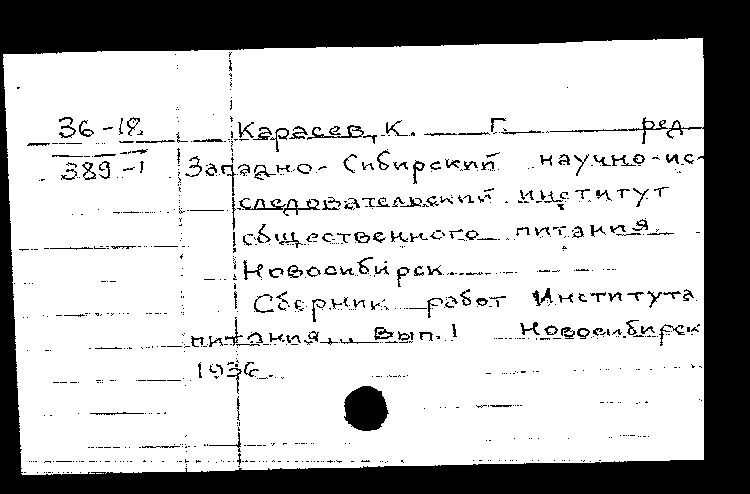 36-18
389-1
Карасев, К. Г. ред.
Западно-Сибирский научно-ис-
следовательский институт
общественного питания.
Новосибирск
Сборник работ Института
питания... Вып. 1 Новосибирск
1936.